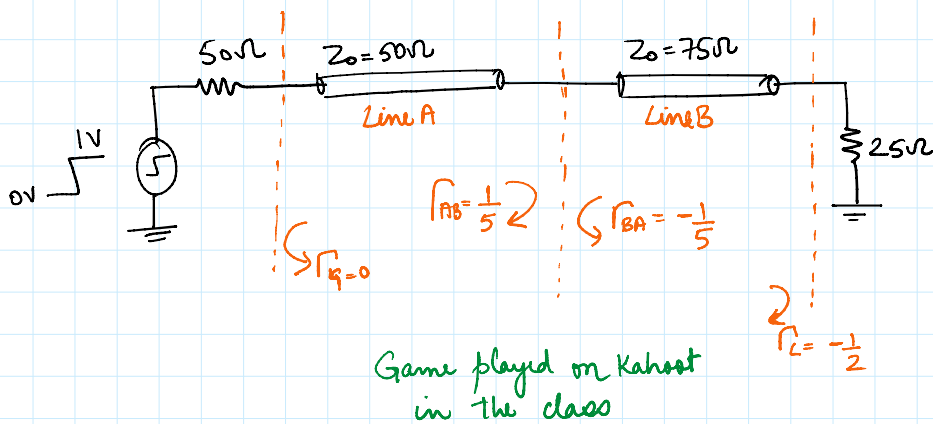 50Ω
Z₀=50Ω
Z₀=75Ω
Line A
Line B
1V
0V
25Ω
Γ_AB = 1/5
Γ_BA = -1/5
Γ_g=0
Γ_L = -1/2
Game played on Kahoot
in the class